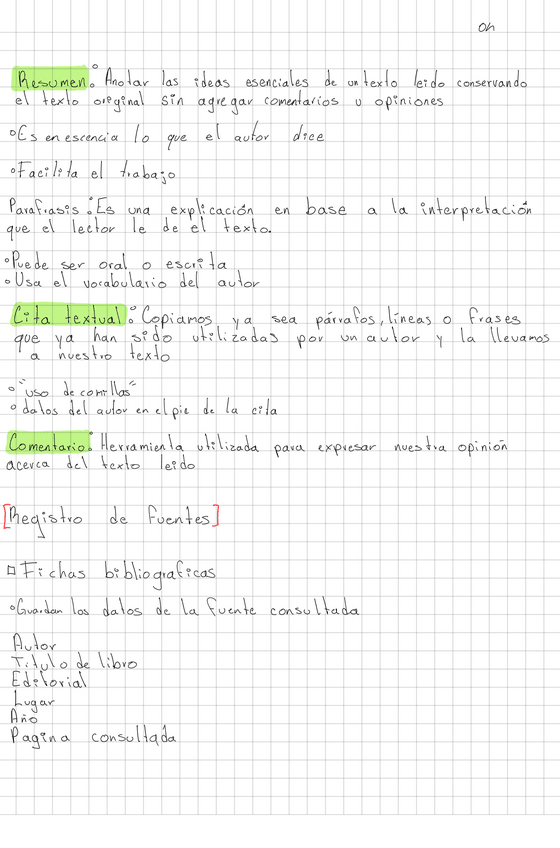 on
Resumen: Anotar las ideas esenciales de un texto leido conservando
el texto original sin agregar comentarios u opiniones
°Es en escencia lo que el autor dice
°Facilita el trabajo
Parafrasis: Es una explicación en base a la interpretación
que el lector le de el texto.
°Puede ser oral o escrita
°Usa el vocabulario del autor
Cita textual: Copiamos ya sea párrafos, líneas o frases
que ya han sido utilizadas por un autor y la llevamos
a nuestro texto
° "uso de comillas"
° datos del autor en el pie de la cita
Comentario: Herramienta utilizada para expresar nuestra opinión
acerca del texto leido
[Registro de fuentes]
□ Fichas bibliograficas
°Guardan los datos de la fuente consultada
Autor
Titulo de libro
Editorial
Lugar
Año
Pagina consultada